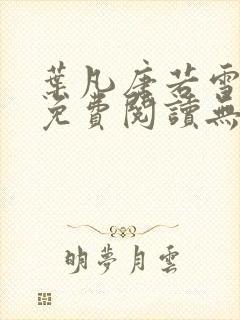 葉凡唐若雪
免費閱讀無
明夢月雲